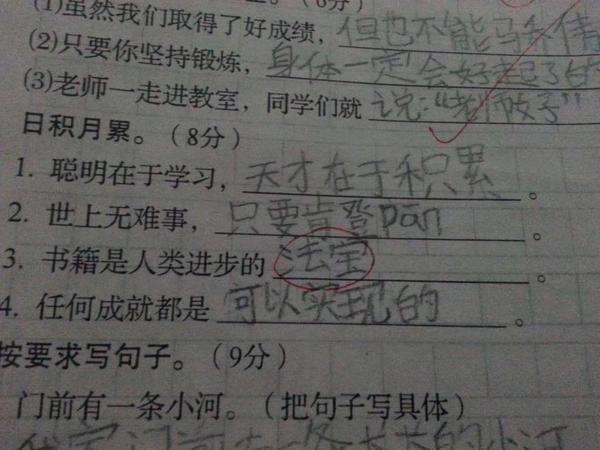 (1)虽然我们取得了好成绩，但也不能马
(2)只要你坚持锻炼，身体一定会好起了的
(3)老师一走进教室，同学们就说："老师
日积月累。（8分）
1. 聪明在于学习，天才在于积累。
2. 世上无难事，只要肯登pān。
3. 书籍是人类进步的法宝。
4. 任何成就都是可以实现的。
按要求写句子。（9分）
门前有一条小河。（把句子写具体）
我家门前有一条长长的小河